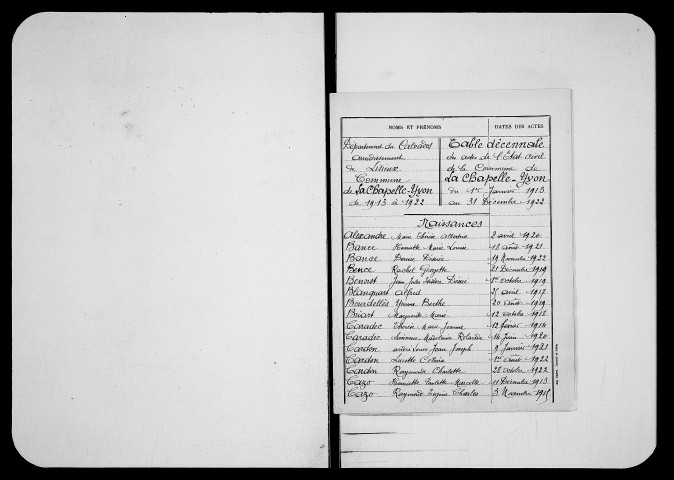 NOMS ET PRÉNOMS
DATES DES ACTES
Département du Calvados
Arrondissement
de Lisieux
Commune
de La Chapelle-Yvon
de 1913 à 1922
Table décennale
des actes de l'État civil
de la Commune de
La Chapelle-Yvon
du 1er Janvier 1913
au 31 Décembre 1922
Naissances
Alexandre Marie Thérèse Albertine 2 avril 1920
Bance Henriette Marie Louise 18 août 1921
Bance Désirée 19 Novembre 1922
Bence Rachel Georgette 21 Décembre 1919
Benoist Jean Jules Désiré 1er octobre 1919
Blanquart Alfred 25 avril 1917
Bourdellès Yvonne Berthe 20 août 1919
Briart Marguerite Marie 12 octobre 1918
Caradec Thérèse Marie Jeanne 12 février 1914
Caradec Simonne Madeleine Rolande 14 Juin 1920
Cardon André Louis Jean Joseph 9 Janvier 1921
Cardon Lucette 1er août 1922
Cardon Raymonde Charlotte 28 octobre 1922
Cazo Henriette Paulette Marcelle 11 Décembre 1913
Cazo Raymond Eugène Charles 3 Novembre 1915